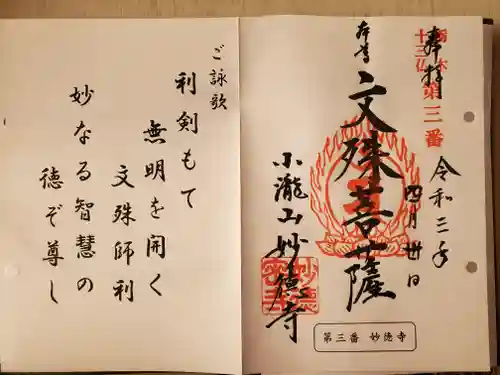 ご詠歌
利剣もて
無明を開く
文殊師利
妙なる智慧の
徳ぞ尊し
奉拝
栃木
十三仏
第三番
令和三年
四月廿日
本尊
文殊菩薩
小瀧山妙徳寺
第三番 妙徳寺